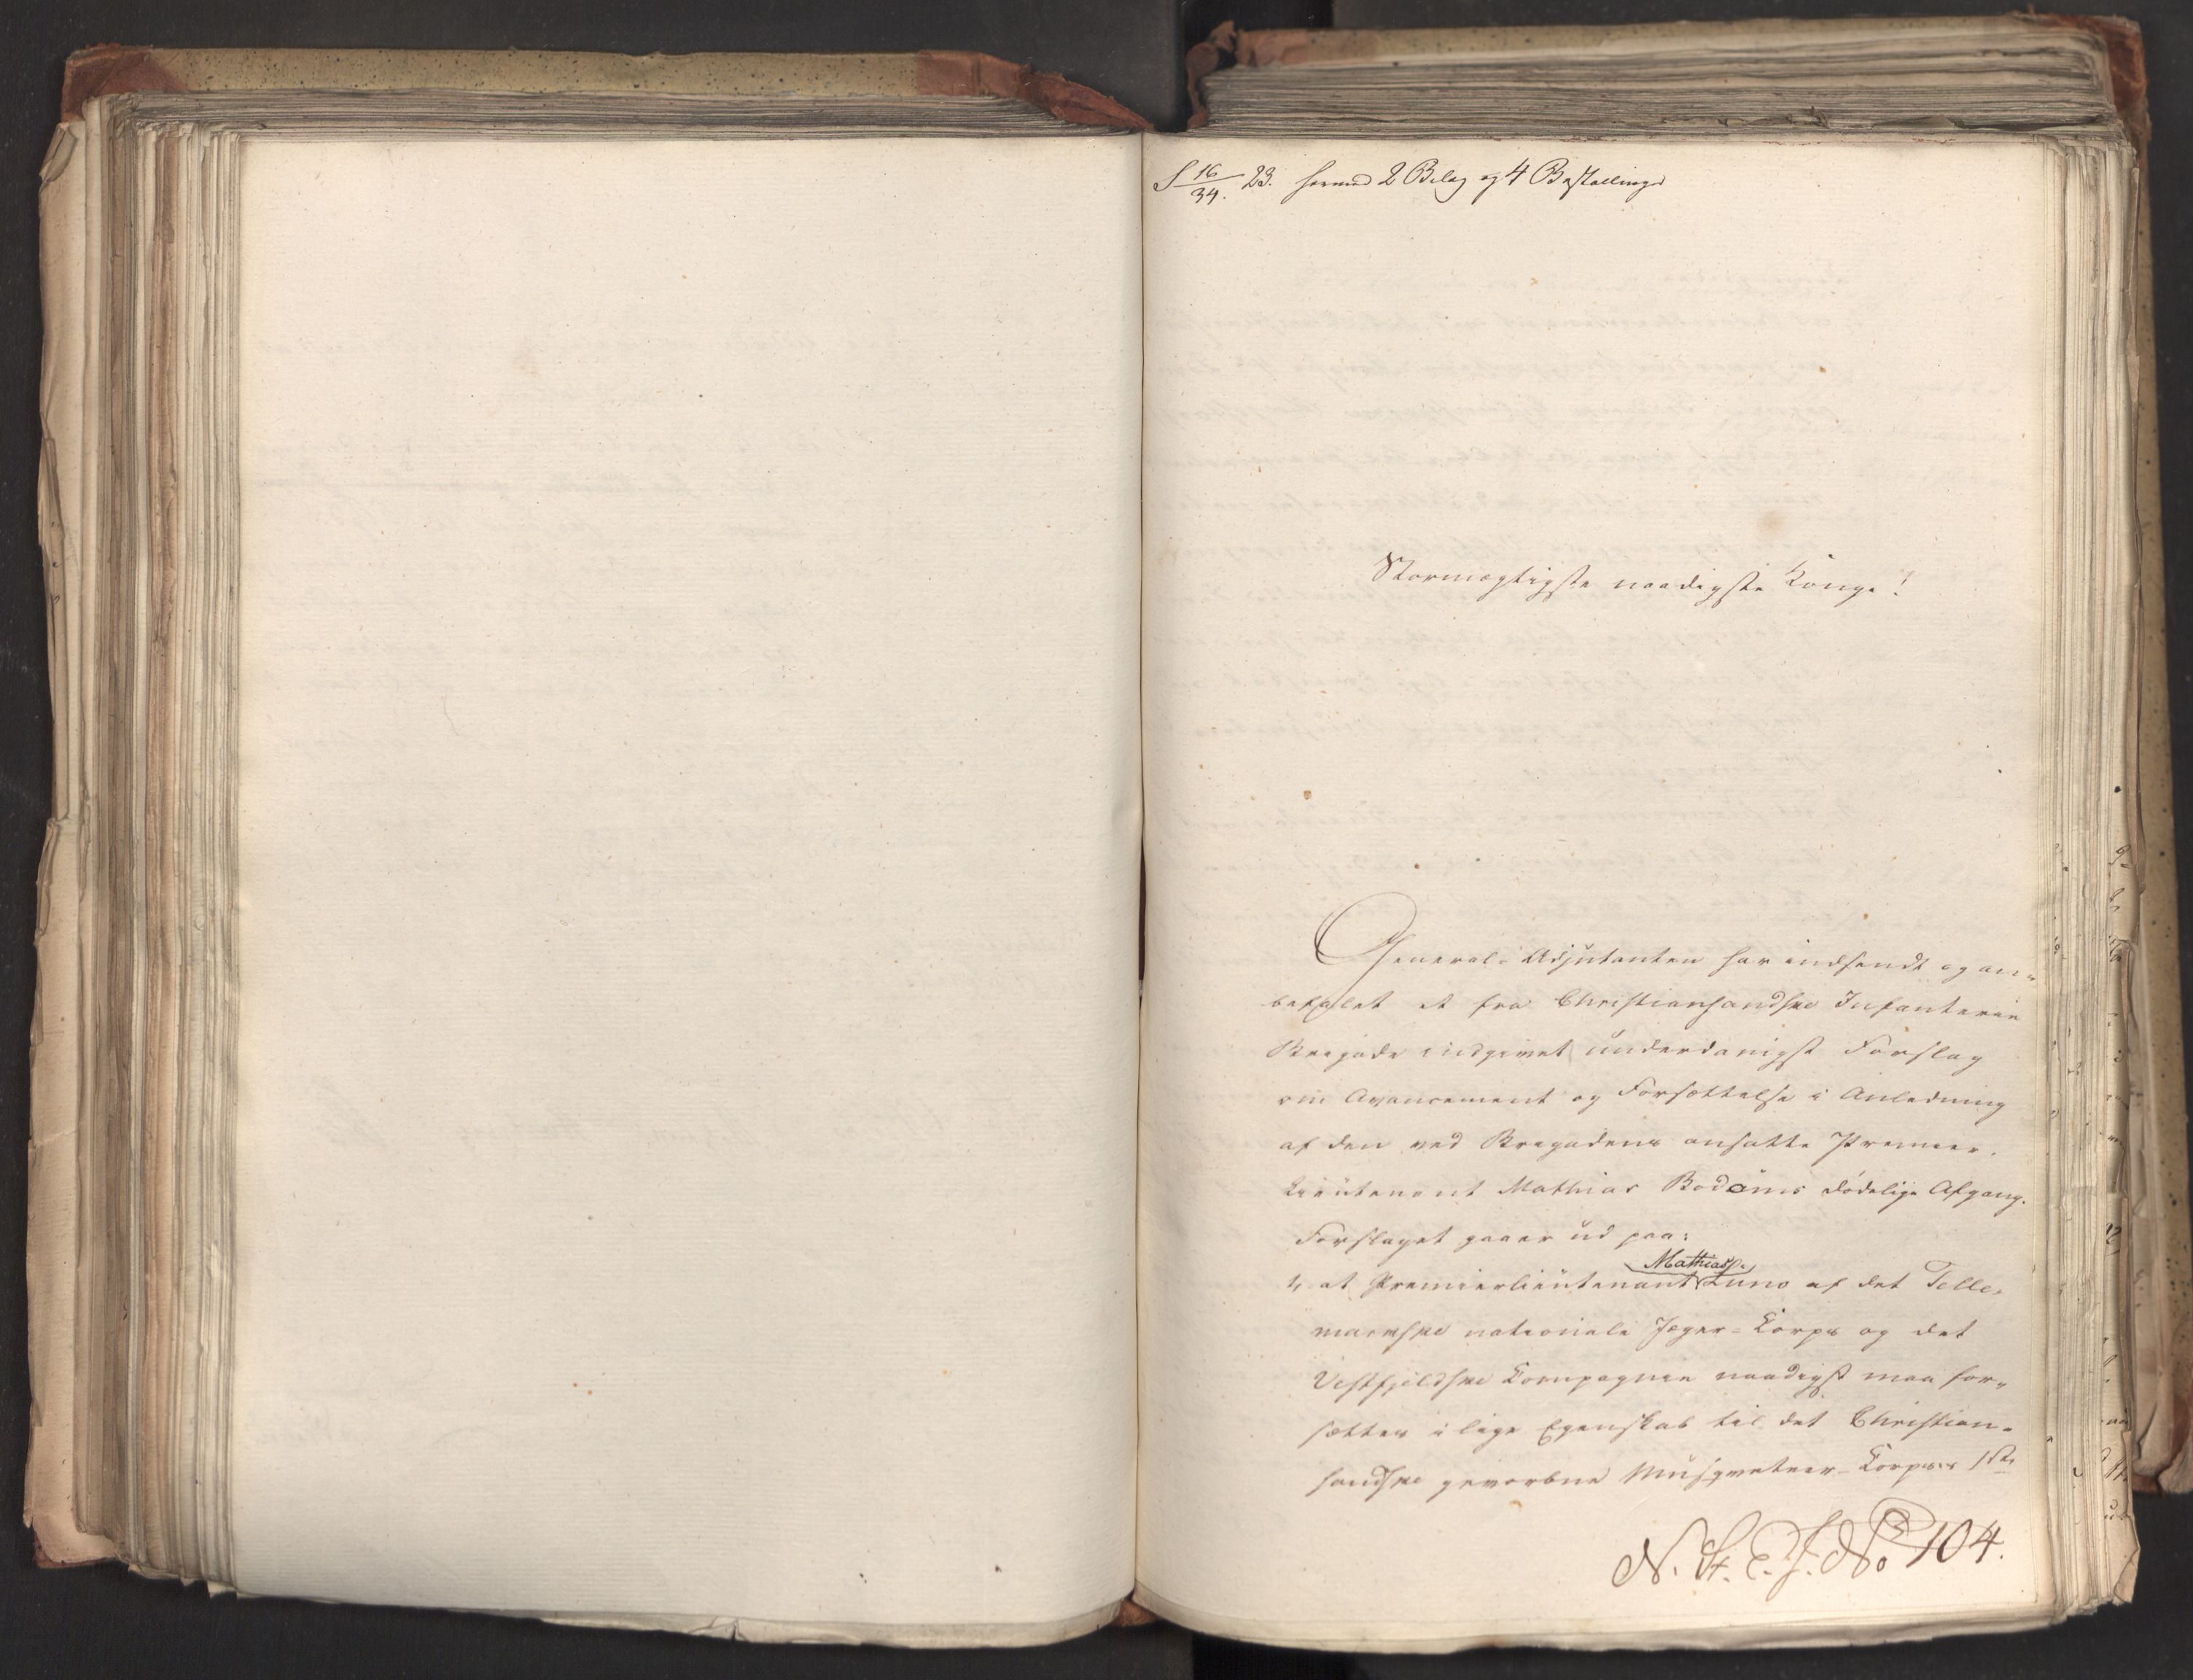 S 16/34. 23. hermed 2 Bilag og 4 Bestallinger
Stormægtigste naadigste Konge!
General-Adjutanten har indsendt og an-
befalet et fra Christiansandske Infanterie
Brigade indgivet underdanigst Forslag
om Avancement og Forsættelse i Anledning
af den ved Brigaden ansatte Premier-
Lieutenant Mathias Bodöms dödelige Afgang.
Forslaget gaaer ud paa:
Mathias
1, at Premierlieutenant Luno af det Telle-
markske nationale Jæger-Korps og det
Vestfjeldske Kompagnie naadigst maa for-
sættes i lige Egenskab til det Christian-
sandske gevorbne Musqueteer-Korpses 1ste
N. St. E. J. No 104.